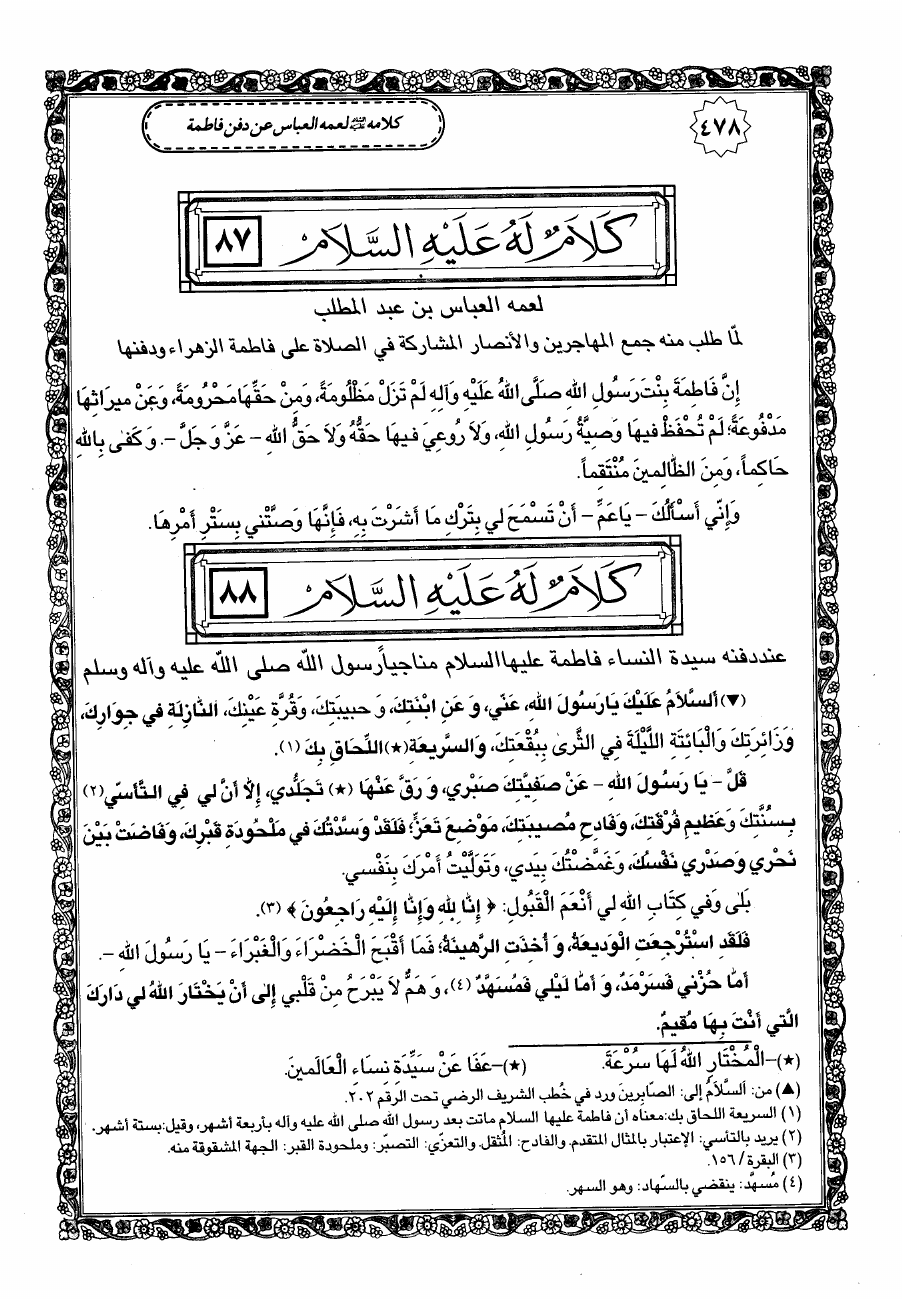 ٤٧٨
كلامه عليه السلام لعمه العباس عن دفن فاطمة
كَلَامٌ لَهُ عَلَيْهِ السَّلَامُ ٨٧
لعمه العباس بن عبد المطلب
لمّا طلب منه جمع المهاجرين والأنصار المشاركة في الصلاة على فاطمة الزهراء ودفنها
إِنَّ فَاطِمَةَ بِنْتَ رَسُولِ اللهِ صَلَّى اللهُ عَلَيْهِ وَآلِهِ لَمْ تَزَلْ مَظْلُومَةً، وَمِنْ حَقِّهَا مَحْرُومَةً، وَعَنْ ميرَاثِهَا
مَدْفُوعَةً؛ لَمْ تُحْفَظْ فيهَا وَصِيَّةُ رَسُولِ اللهِ، وَلاَ رُوعِيَ فيهَا حَقُّهُ وَلاَ حَقُّ اللهِ - عَزَّ وَجَلَّ -. وَكَفى بِاللهِ
حَاكِماً، وَمِنَ الظَّالِمينَ مُنْتَقِماً.
وَإِنّي أَسْأَلُكَ - يَا عَمِّ - أَنْ تَسْمَحَ لي بِتَرْكِ مَا أَشَرْتَ بِهِ، فَإِنَّهَا وَصَّتْني بِسَتْرِ أَمْرِهَا.
كَلَامٌ لَهُ عَلَيْهِ السَّلَامُ ٨٨
عند دفنه سيدة النساء فاطمة عليها السلام مناجياً رسول الله صلى الله عليه وآله وسلم
(▼) اَلسَّلاَمُ عَلَيْكَ يَا رَسُولَ اللهِ، عَنّي، وَ عَنِ ابْنَتِكَ، وَ حَبيبَتِكَ، وَقُرَّةِ عَيْنِكَ، النَّازِلَةِ في جِوَارِكَ،
وَزَائِرَتِكَ وَالْبَائِتَةِ اللَّيْلَةَ فِي الثَّرى بِبُقْعَتِكَ، وَالسَّريعَةِ (★) اللَّحَاقِ بِكَ (١).
قَلَّ - يَا رَسُولَ اللهِ - عَنْ صَفِيَّتِكَ صَبْري، وَ رَقَّ عَنْهَا (★) تَجَلُّدي، إِلاَّ أَنَّ لي فِي التَّأَسّي (٢)
بِسُنَّتِكَ وَعَظيمِ فُرْقَتِكَ، وَفَادِحِ مُصيبَتِكَ، مَوْضِعَ تَعَزٍّ؛ فَلَقَدْ وَسَّدْتُكَ في مَلْحُودَةِ قَبْرِكَ، وَفَاضَتْ بَيْنَ
نَحْري وَصَدْري نَفْسُكَ، وَغَمَّضْتُكَ بِيَدي، وَتَوَلَّيْتُ أَمْرَكَ بِنَفْسي.
بَلى وَفي كِتَابِ اللهِ لي أَنْعَمَ الْقَبُولِ: ﴿ إِنَّا لِلّهِ وَإِنَّا إِلَيْهِ رَاجِعُونَ ﴾ (٣).
فَلَقَدِ اسْتُرْجِعَتِ الْوَديعَةُ، وَ أُخِذَتِ الرَّهينَةُ؛ فَمَا أَقْبَحَ الْخَضْرَاءَ وَالْغَبْرَاءَ - يَا رَسُولَ اللهِ -.
أَمَّا حُزْني فَسَرْمَدٌ، وَ أَمَّا لَيْلي فَمُسَهَّدٌ (٤)، وَ هَمٌّ لاَ يَبْرَحُ مِنْ قَلْبي إِلى أَنْ يَخْتَارَ اللهُ لي دَارَكَ
الَّتي أَنْتَ بِهَا مُقيمٌ.
(★)-الْمُخْتَارِ اللهُ لَهَا سُرْعَةَ. (★)-عَفَا عَنْ سَيِّدَةِ نِسَاءِ الْعَالَمينَ.
(▲) من: اَلسَّلاَمُ إلى: الصَّابِرينَ ورد في خطب الشريف الرضي تحت الرقم ٢٠٢.
(١) السريعة اللحاق بك: معناه أن فاطمة عليها السلام ماتت بعد رسول الله صلى الله عليه وآله بأربعة أشهر، وقيل: بستة أشهر.
(٢) يريد بالتأسي: الإعتبار بالمثال المتقدم. والفادح: المُثقل. والتعزي: التصبّر: وملحودة القبر: الجهة المشقوقة منه.
(٣) البقرة / ١٥٦.
(٤) مُسهَّد: ينقضي بالسّهاد: وهو السهر.